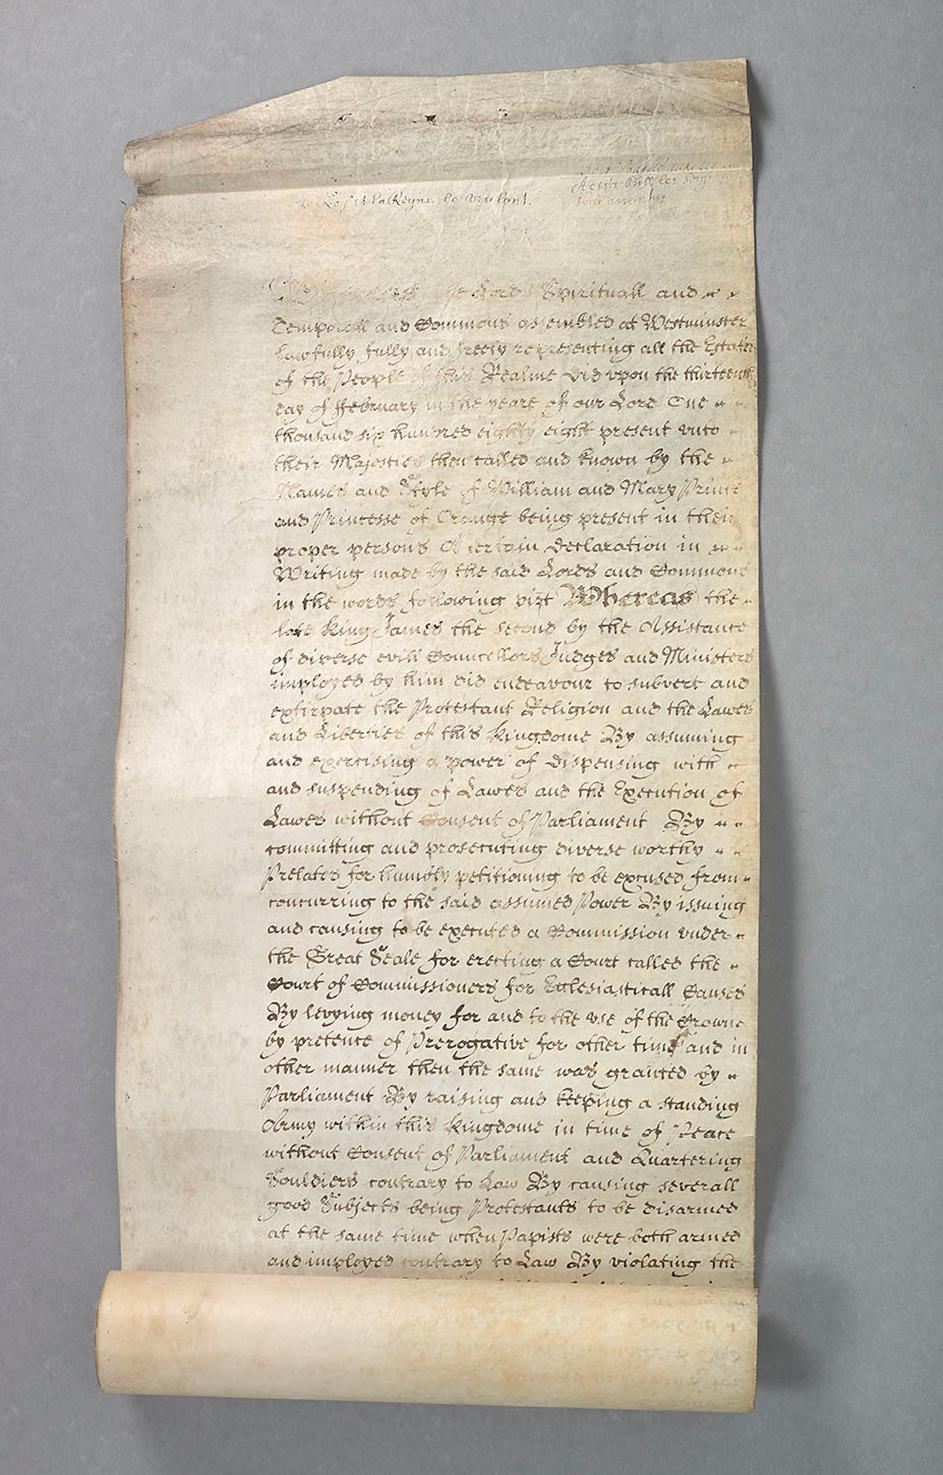 Le Roy et la Reyne le veulent.
the Lords Spirituall and
Temporall and Commons assembled at Westminster
lawfully fully and freely representing all the Estates
of the People of this Realme did upon the thirteenth
day of ffebruary in the yeare of our Lord One
thousand six hundred eighty eight present unto
their Majesties then called and known by the
Names and Stile of William and Mary Prince
and Princesse of Orange being present in their
proper persons A certain Declaration in
Writing made by the said Lords and Commons
in the words following vizt Whereas the
late King James the second by the Assistance
of diverse evill Councellors Judges and Ministers
imployed by him did endeavour to subvert and
extirpate the Protestant Religion and the Lawes
and Liberties of this Kingdome By assuming
and exercising a power of dispensing with
and suspending of Lawes and the Execution of
Lawes without Consent of Parliament By
committing and prosecuting diverse worthy
Prelates for humbly petitioning to be excused from
concurring to the said assumed Power By issuing
and causing to be executed a Commission under
the Great Seale for erecting a Court called the
Court of Commissioners for Ecclesiasticall Causes
By levying money for and to the use of the Crowne
by pretence of Prerogative for other time and in
other manner then the same was granted by
Parliament By raising and keeping a standing
Army within this Kingdome in time of Peace
without Consent of Parliament and Quartering
Souldiers contrary to Law By causing severall
good Subjects being Protestants to be disarmed
at the same time when Papists were both armed
and imployed contrary to Law By violating the